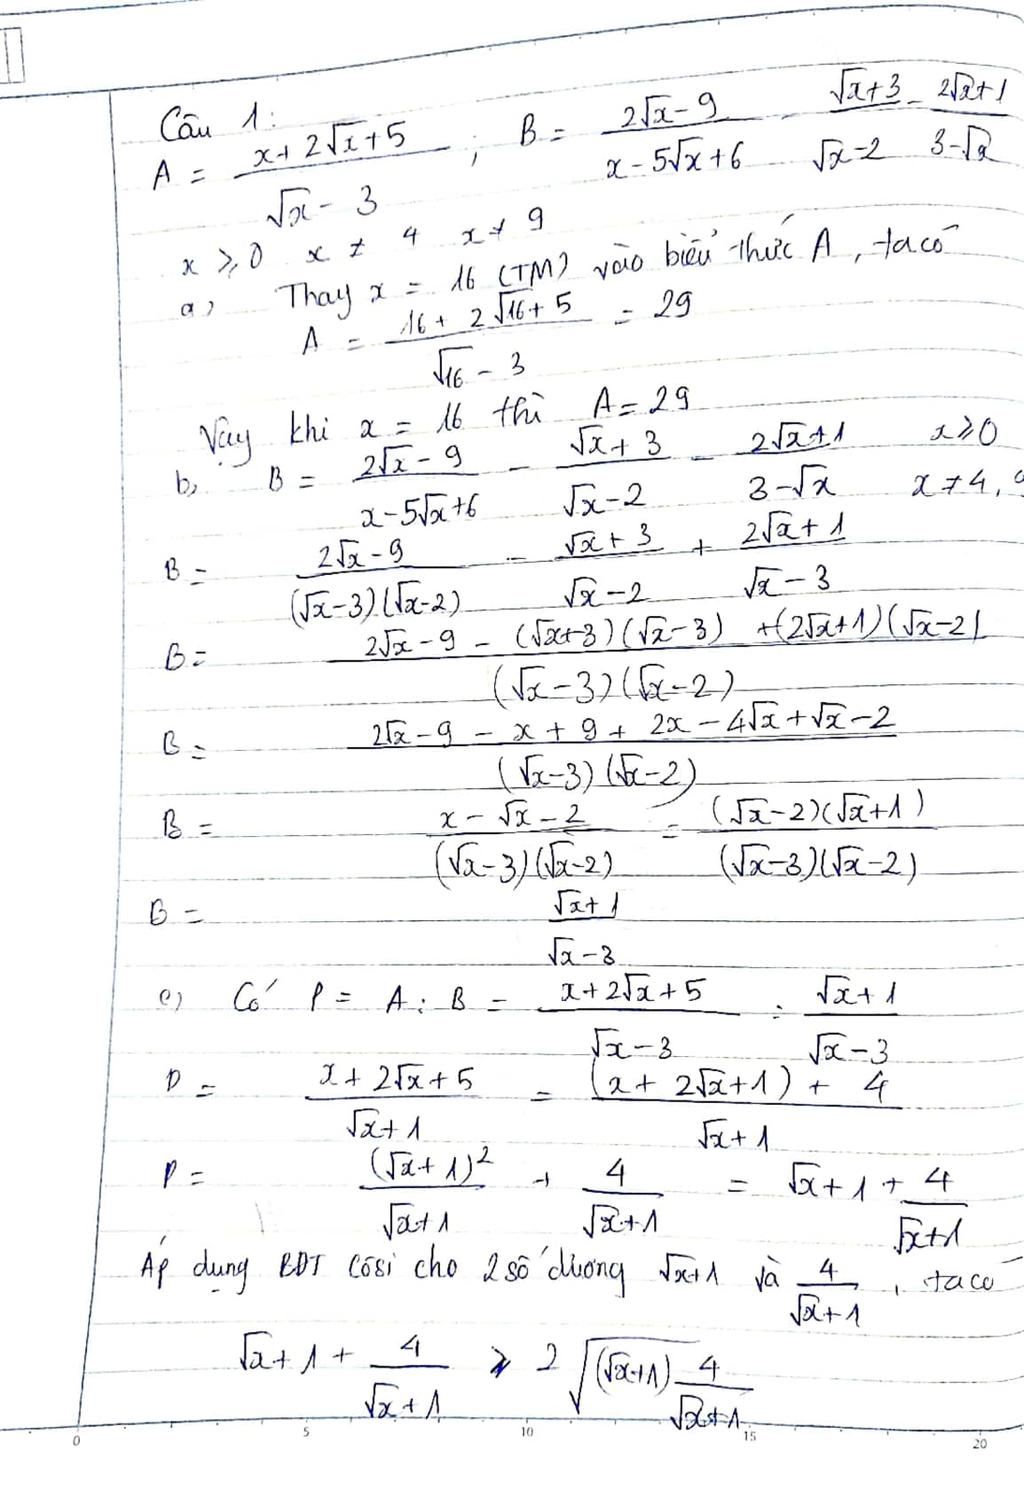 Câu 1:
A = (x + 2√x + 5)/(√x - 3) ; B = (2√x - 9)/(x - 5√x + 6) - (√x + 3)/(√x - 2) - (2√x + 1)/(3 - √x)
x ⩾ 0 x ≠ 4 x ≠ 9
a, Thay x = 16 (TM) vào biểu thức A, ta có
A = (16 + 2√16 + 5)/(√16 - 3) = 29
Vậy khi x = 16 thì A = 29
b, B = (2√x - 9)/(x - 5√x + 6) - (√x + 3)/(√x - 2) - (2√x + 1)/(3 - √x) x ⩾ 0 x ≠ 4, 9
B = (2√x - 9)/((√x - 3)(√x - 2)) - (√x + 3)/(√x - 2) + (2√x + 1)/(√x - 3)
B = (2√x - 9 - (√x + 3)(√x - 3) + (2√x + 1)(√x - 2))/((√x - 3)(√x - 2))
B = (2√x - 9 - x + 9 + 2x - 4√x + √x - 2)/((√x - 3)(√x - 2))
B = (x - √x - 2)/((√x - 3)(√x - 2)) = ((√x - 2)(√x + 1))/((√x - 3)(√x - 2))
B = (√x + 1)/(√x - 3)
c) Có P = A : B = (x + 2√x + 5)/(√x - 3) : (√x + 1)/(√x - 3)
P = (x + 2√x + 5)/(√x + 1) = ((x + 2√x + 1) + 4)/(√x + 1)
P = (√x + 1)²/(√x + 1) + 4/(√x + 1) = √x + 1 + 4/(√x + 1)
Áp dụng BĐT Côsi cho 2 số dương √x + 1 và 4/(√x + 1), ta có
√x + 1 + 4/(√x + 1) ⩾ 2√((√x + 1) 4/(√x + 1))
0 5 10 15 20